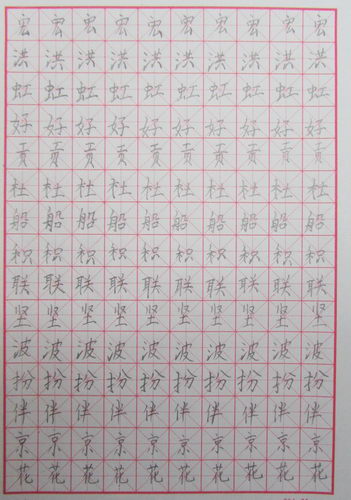 宏宏宏宏宏宏宏宏宏宏
洪洪洪洪洪洪洪洪洪洪
虹虹虹虹虹虹虹虹虹虹
好好好好好好好好好好
贡贡贡贡贡贡贡贡贡贡
杜杜杜杜杜杜杜杜杜杜
船船船船船船船船船船
积积积积积积积积积积
联联联联联联联联联联
坚坚坚坚坚坚坚坚坚坚
波波波波波波波波波波
扮扮扮扮扮扮扮扮扮扮
伴伴伴伴伴伴伴伴伴伴
京京京京京京京京京京
花花花花花花花花花花